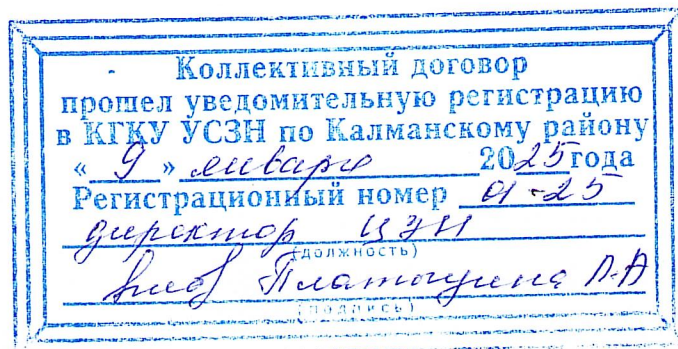 Коллективный договор
прошел уведомительную регистрацию
в КГКУ УСЗН по Калманскому району
« 9 » января 2025 года
Регистрационный номер 01-25
директор ЦЗН
(должность)
(подпись)